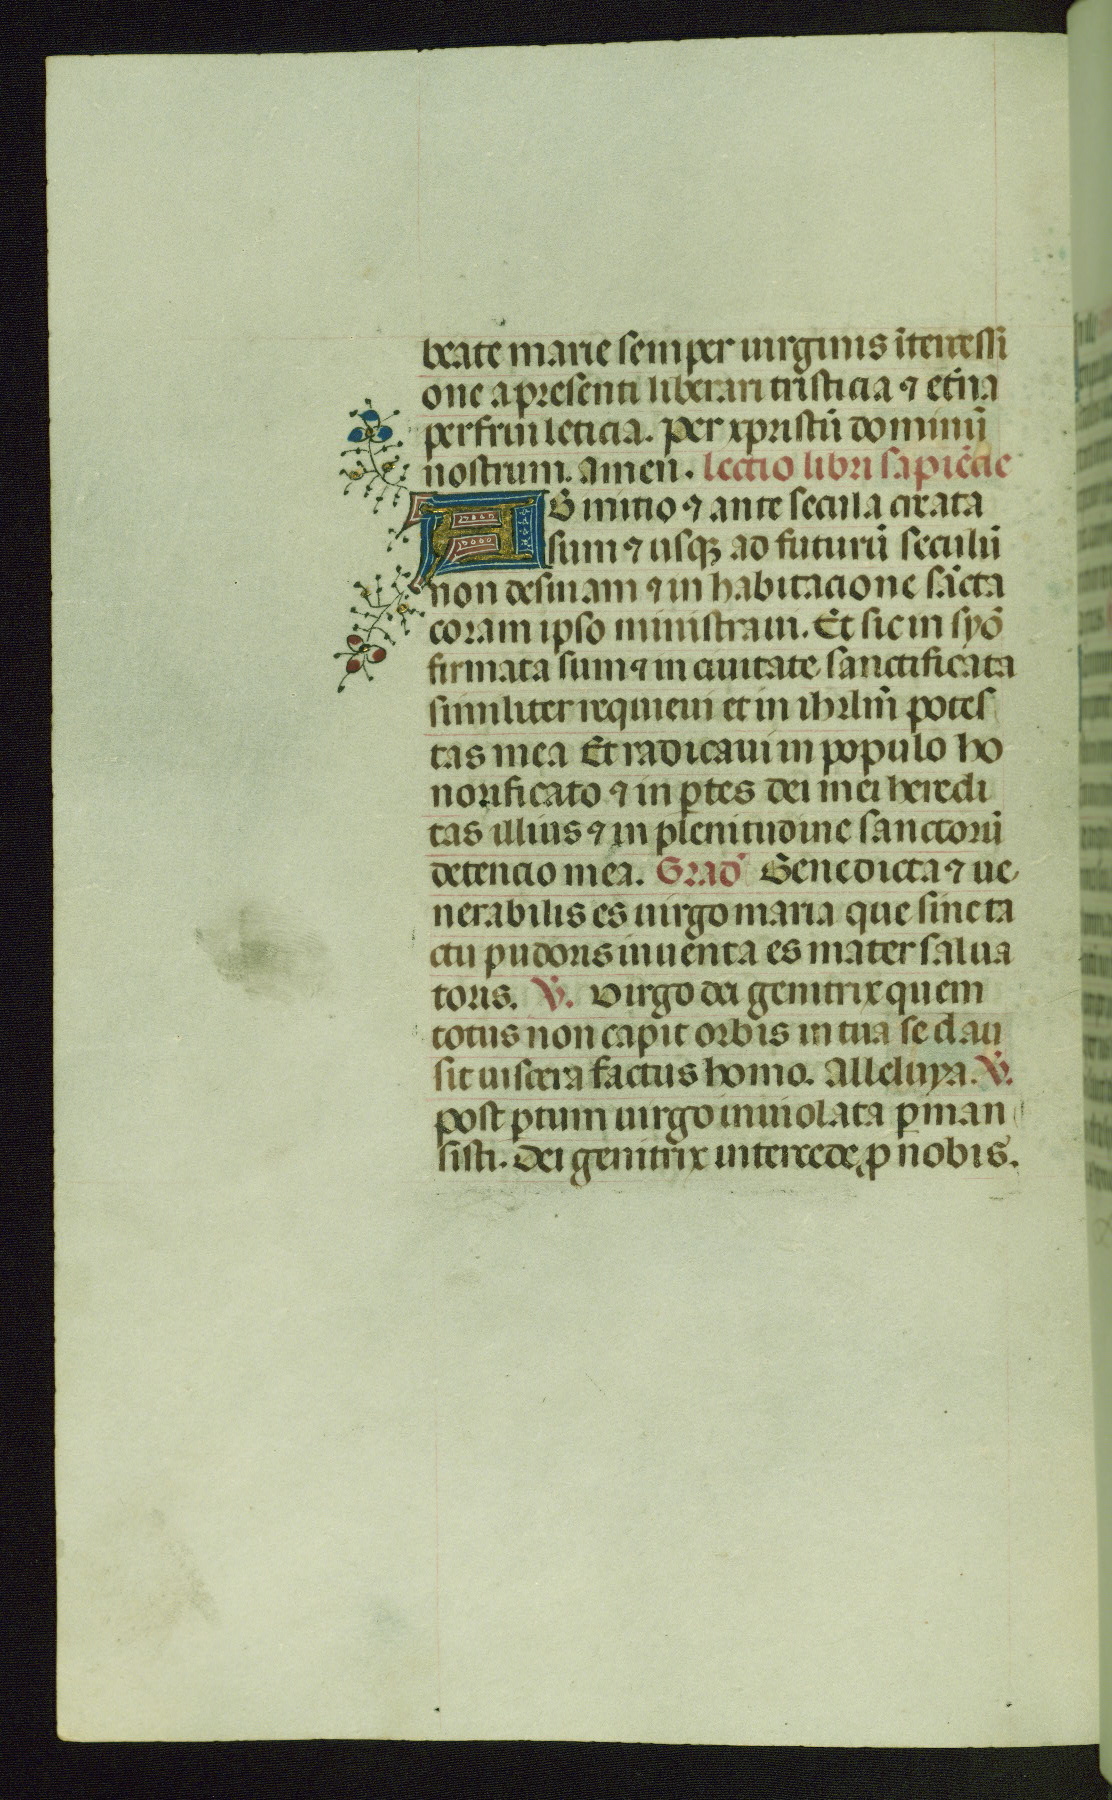 beate marie semper uirginis ĩtercessi
one a presenti liberari tristicia ⁊ et̃na
perfrui leticia. Per xpristũ dominũ
nostrum. Amen. lectio libri sapiẽcie
AB initio ⁊ ante secula creata
sum ⁊ usqꝫ ad futurũ seculũ
non desinam ⁊ in habitacione sãcta
coram ipso ministraui. Et sic in syõ
firmata sum ⁊ in ciuitate sanctificata
similiter requieui et in ihrlm̃ potes
tas mea Et radicaui in populo ho
norificato ⁊ in ꝑtes dei mei heredi
tas illius ⁊ in plenitudine sanctorũ
detencio mea. Grad̾ Benedicta ⁊ ue
nerabilis es uirgo maria que sine ta
ctu pudoris inuenta es mater salua
toris. ℣. Virgo dei genitrix quem
totus non capit orbis in tua se clau
sit uiscera factus homo. Alleluya. ℣.
post ꝑtum uirgo inuiolata ꝑman
sisti. Dei genitrix intercede ꝓ nobis.